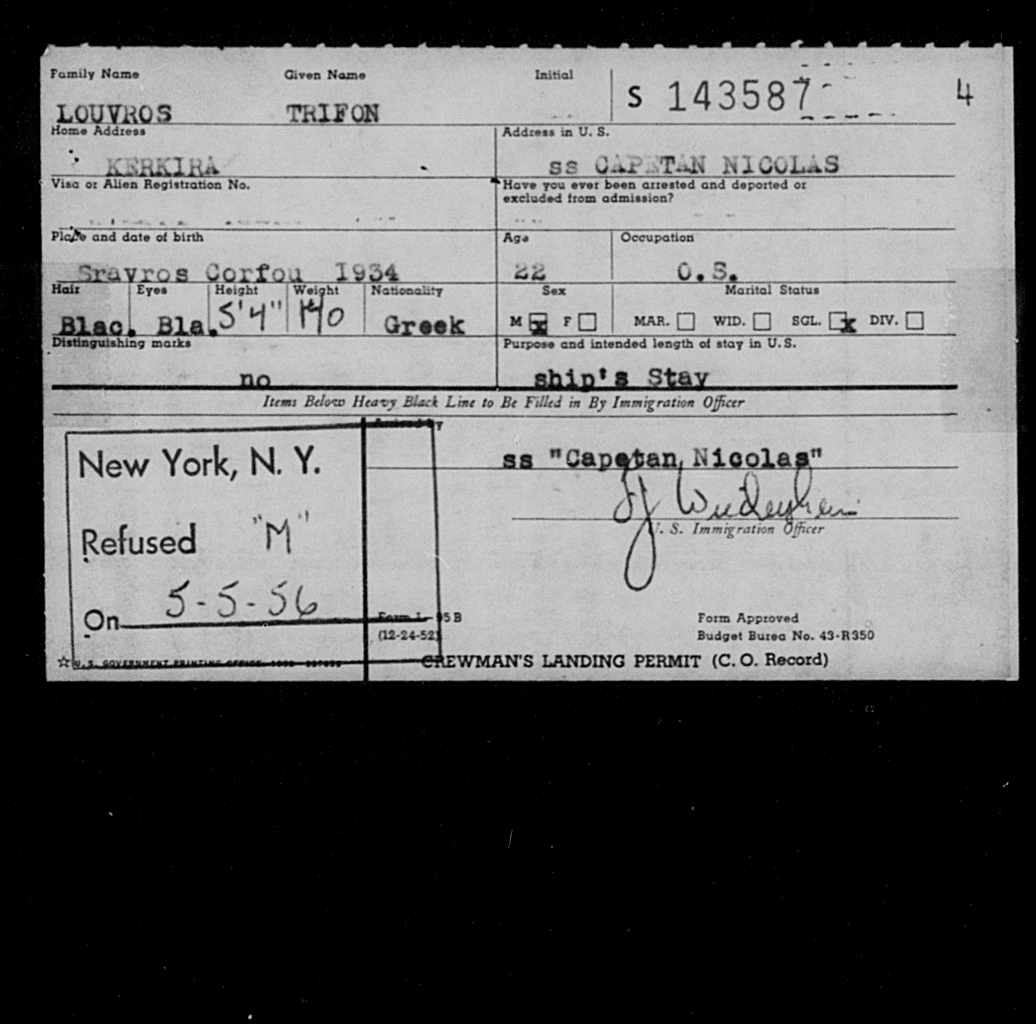 Family Name Given Name Initial
LOUVROS TRIFON S 143587 4
Home Address Address in U. S.
KERKIRA ss CAPETAN NICOLAS
Visa or Alien Registration No. Have you ever been arrested and deported or
excluded from admission?
Place and date of birth Age Occupation
Sravros Corfou 1934 22 O.S.
Hair Eyes Height Weight Nationality Sex Marital Status
Blac. Bla. 5'4" 140 Greek M x F MAR. WID. SGL. x DIV.
Distinguishing marks Purpose and intended length of stay in U. S.
no ship's Stay
Items Below Heavy Black Line to Be Filled in By Immigration Officer
New York, N. Y. ss "Capetan Nicolas"
U. S. Immigration Officer
Refused "M"
On 5-5-56
Form I-95B Form Approved
(12-24-52) Budget Burea No. 43-R350
CREWMAN'S LANDING PERMIT (C. O. Record)